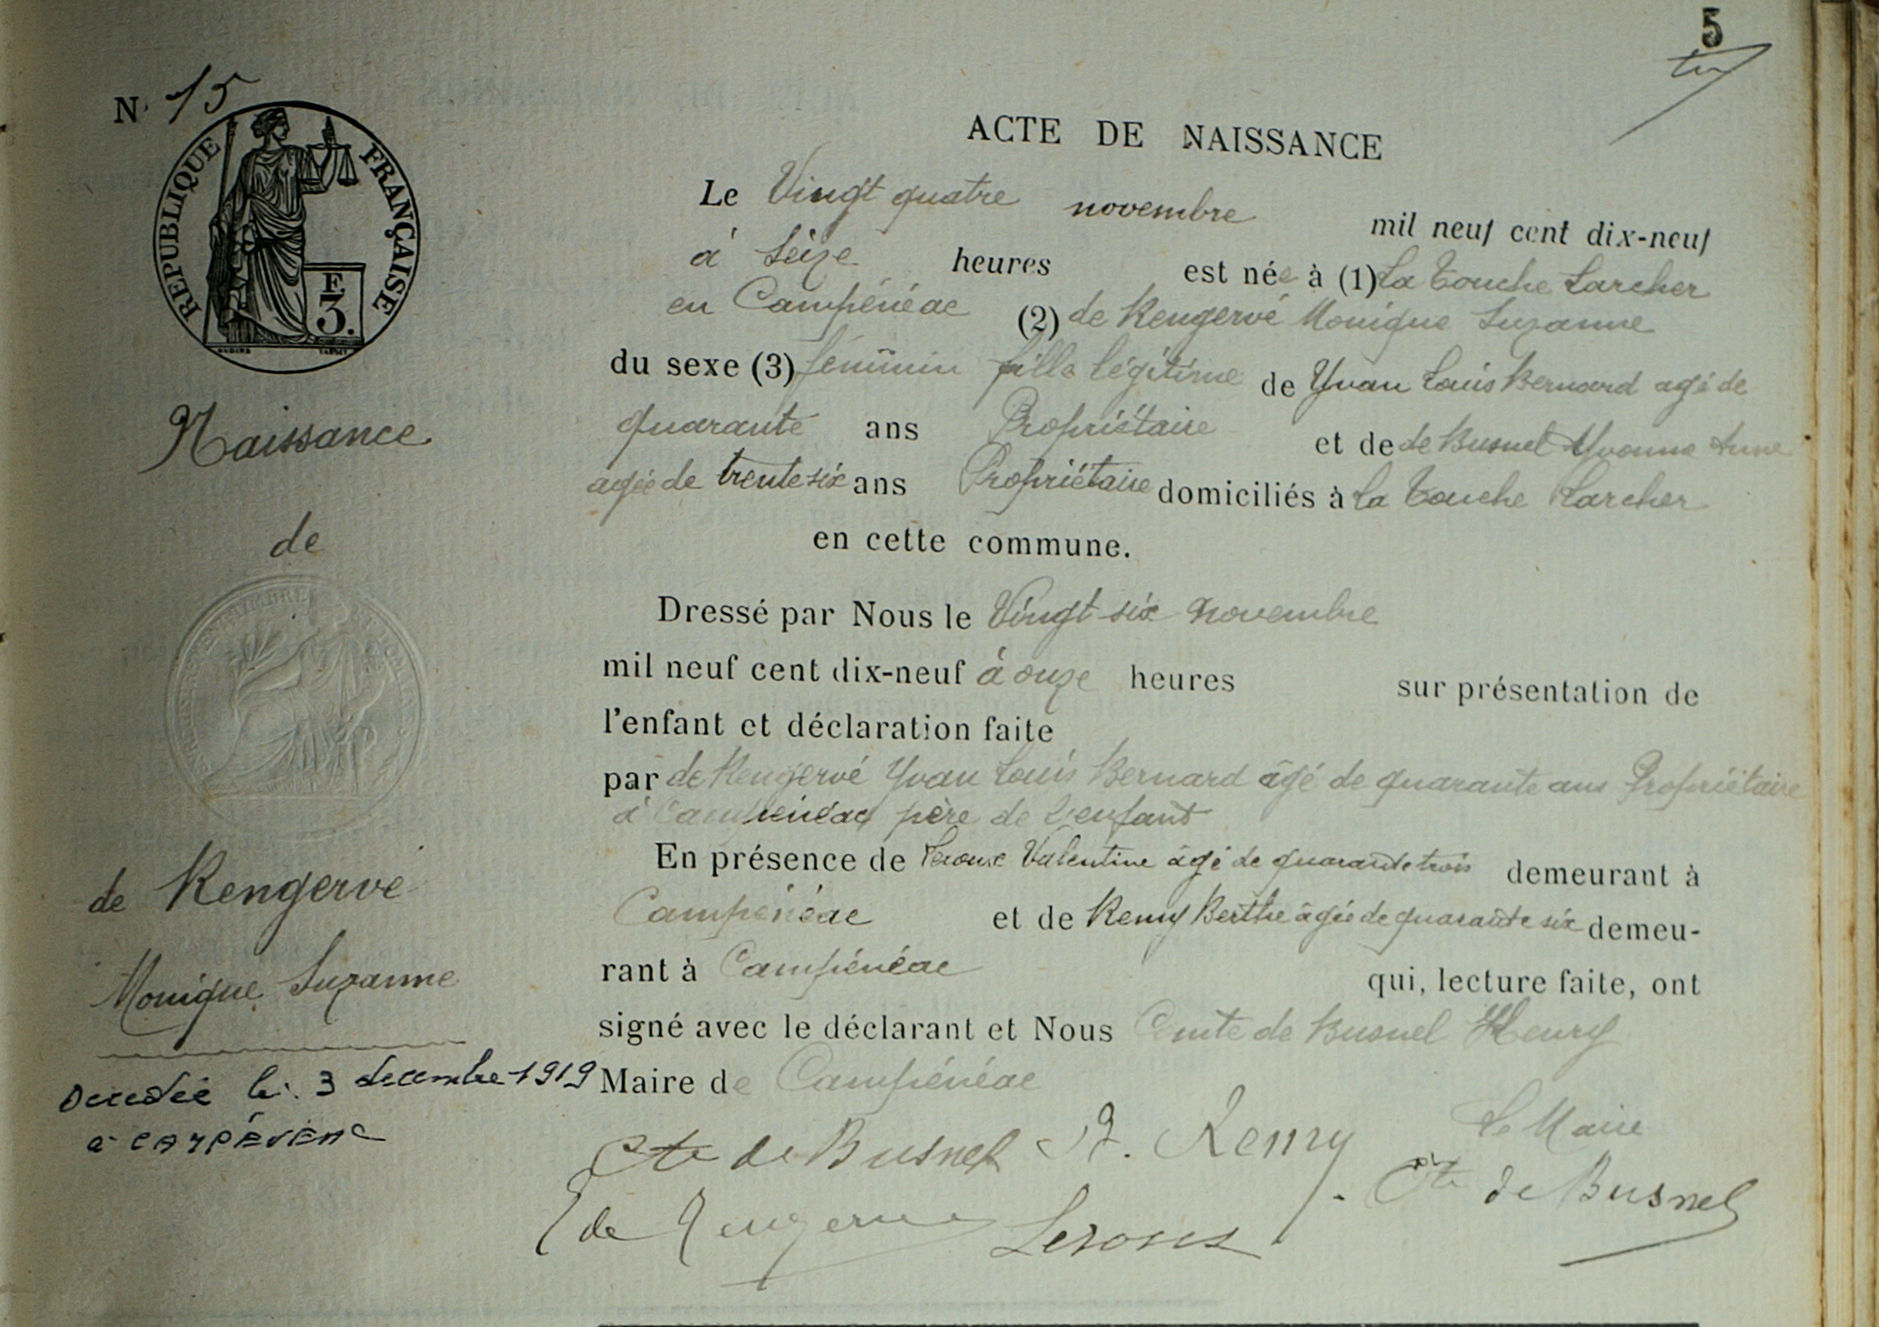 5
N. 15
REPUBLIQUE FRANÇAISE
F
3.
Naissance
de
de Kengervé
Monique Suzanne
Décédée le 3 décembre 1919
à CAMPÉNÉAC
ACTE DE NAISSANCE
Le Vingt quatre novembre mil neuf cent dix-neuf
à Seize heures est née à (1) La Touche Larcher
en Campénéac (2) de Kengervé Monique Suzanne
du sexe (3) féminin fille légitime de Yvan Louis Bernard agé de
quarante ans Propriétaire et de de Busnel Yvonne Anne
agée de trente six ans Propriétaire domiciliés à La Touche Larcher
en cette commune.
Dressé par Nous le Vingt-six novembre
mil neuf cent dix-neuf à onze heures sur présentation de
l'enfant et déclaration faite
par de Kengervé Yvan Louis Bernard âgé de quarante ans Propriétaire
à Campénéac père de l'enfant
En présence de Leroux Valentine âgé de quarante trois demeurant à
Campénéac et de Remy Berthe âgée de quarante six demeu-
rant à Campénéac qui, lecture faite, ont
signé avec le déclarant et Nous Comte de Busnel Henry
Maire de Campénéac
Cte de Busnel B. Remy Le Maire
Y de Kengervé Leroux Cte de Busnel